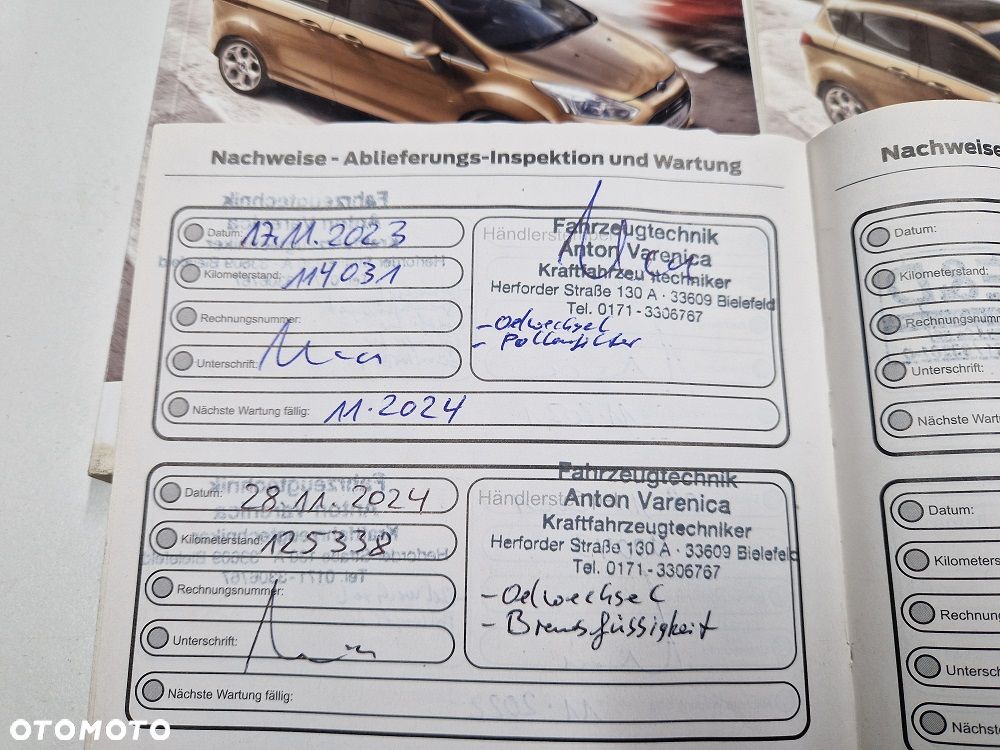 Nachweise - Ablieferungs-Inspektion und Wartung
Datum: 17.11.2023
Kilometerstand: 114031
Rechnungsnummer:
Unterschrift:
Nächste Wartung fällig: 11.2024
Händlerstempel
Fahrzeugtechnik
Anton Varenica
Kraftfahrzeugtechniker
Herforder Straße 130 A · 33609 Bielefeld
Tel. 0171-3306767
- Oelwechsel
- Pollenfilter
Datum: 28.11.2024
Kilometerstand: 125338
Rechnungsnummer:
Unterschrift:
Nächste Wartung fällig:
Händlerste
Fahrzeugtechnik
Anton Varenica
Kraftfahrzeugtechniker
Herforder Straße 130 A · 33609 Bielefeld
Tel. 0171-3306767
- Oelwechsel
- Bremsfüssigkeit
Nachweise
Datum:
Kilometerstand:
Rechnungsnumme
Unterschrift:
Nächste Wart
Datum:
Kilometers
Rechnung
Untersch
Nächst
OTOMOTO